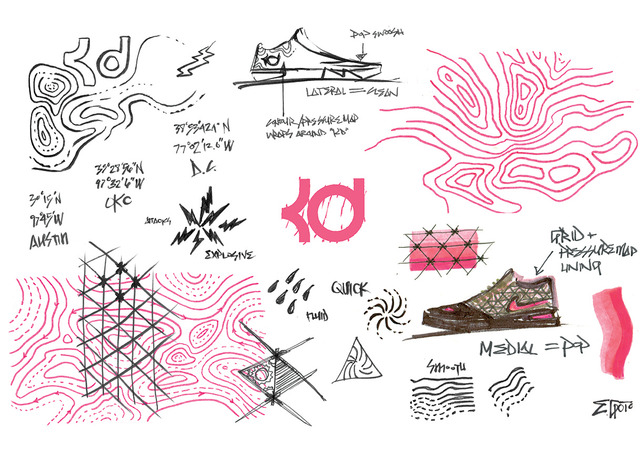 KD
POP SWOOSH
LATERAL = CLEAN
CONTOUR/PRESSURE MAP
WRAPS AROUND "KD"
77°02'12.6"W
D.C.
35°28'56"N
97°32'6"W
OKC
30°15'N
97°45'W
AUSTIN
ATTACKS
EXPLOSIVE
KD
QUICK
FLUID
GRID +
PRESSURE MAP
LINING
MEDIAL = POP
SMOOTH